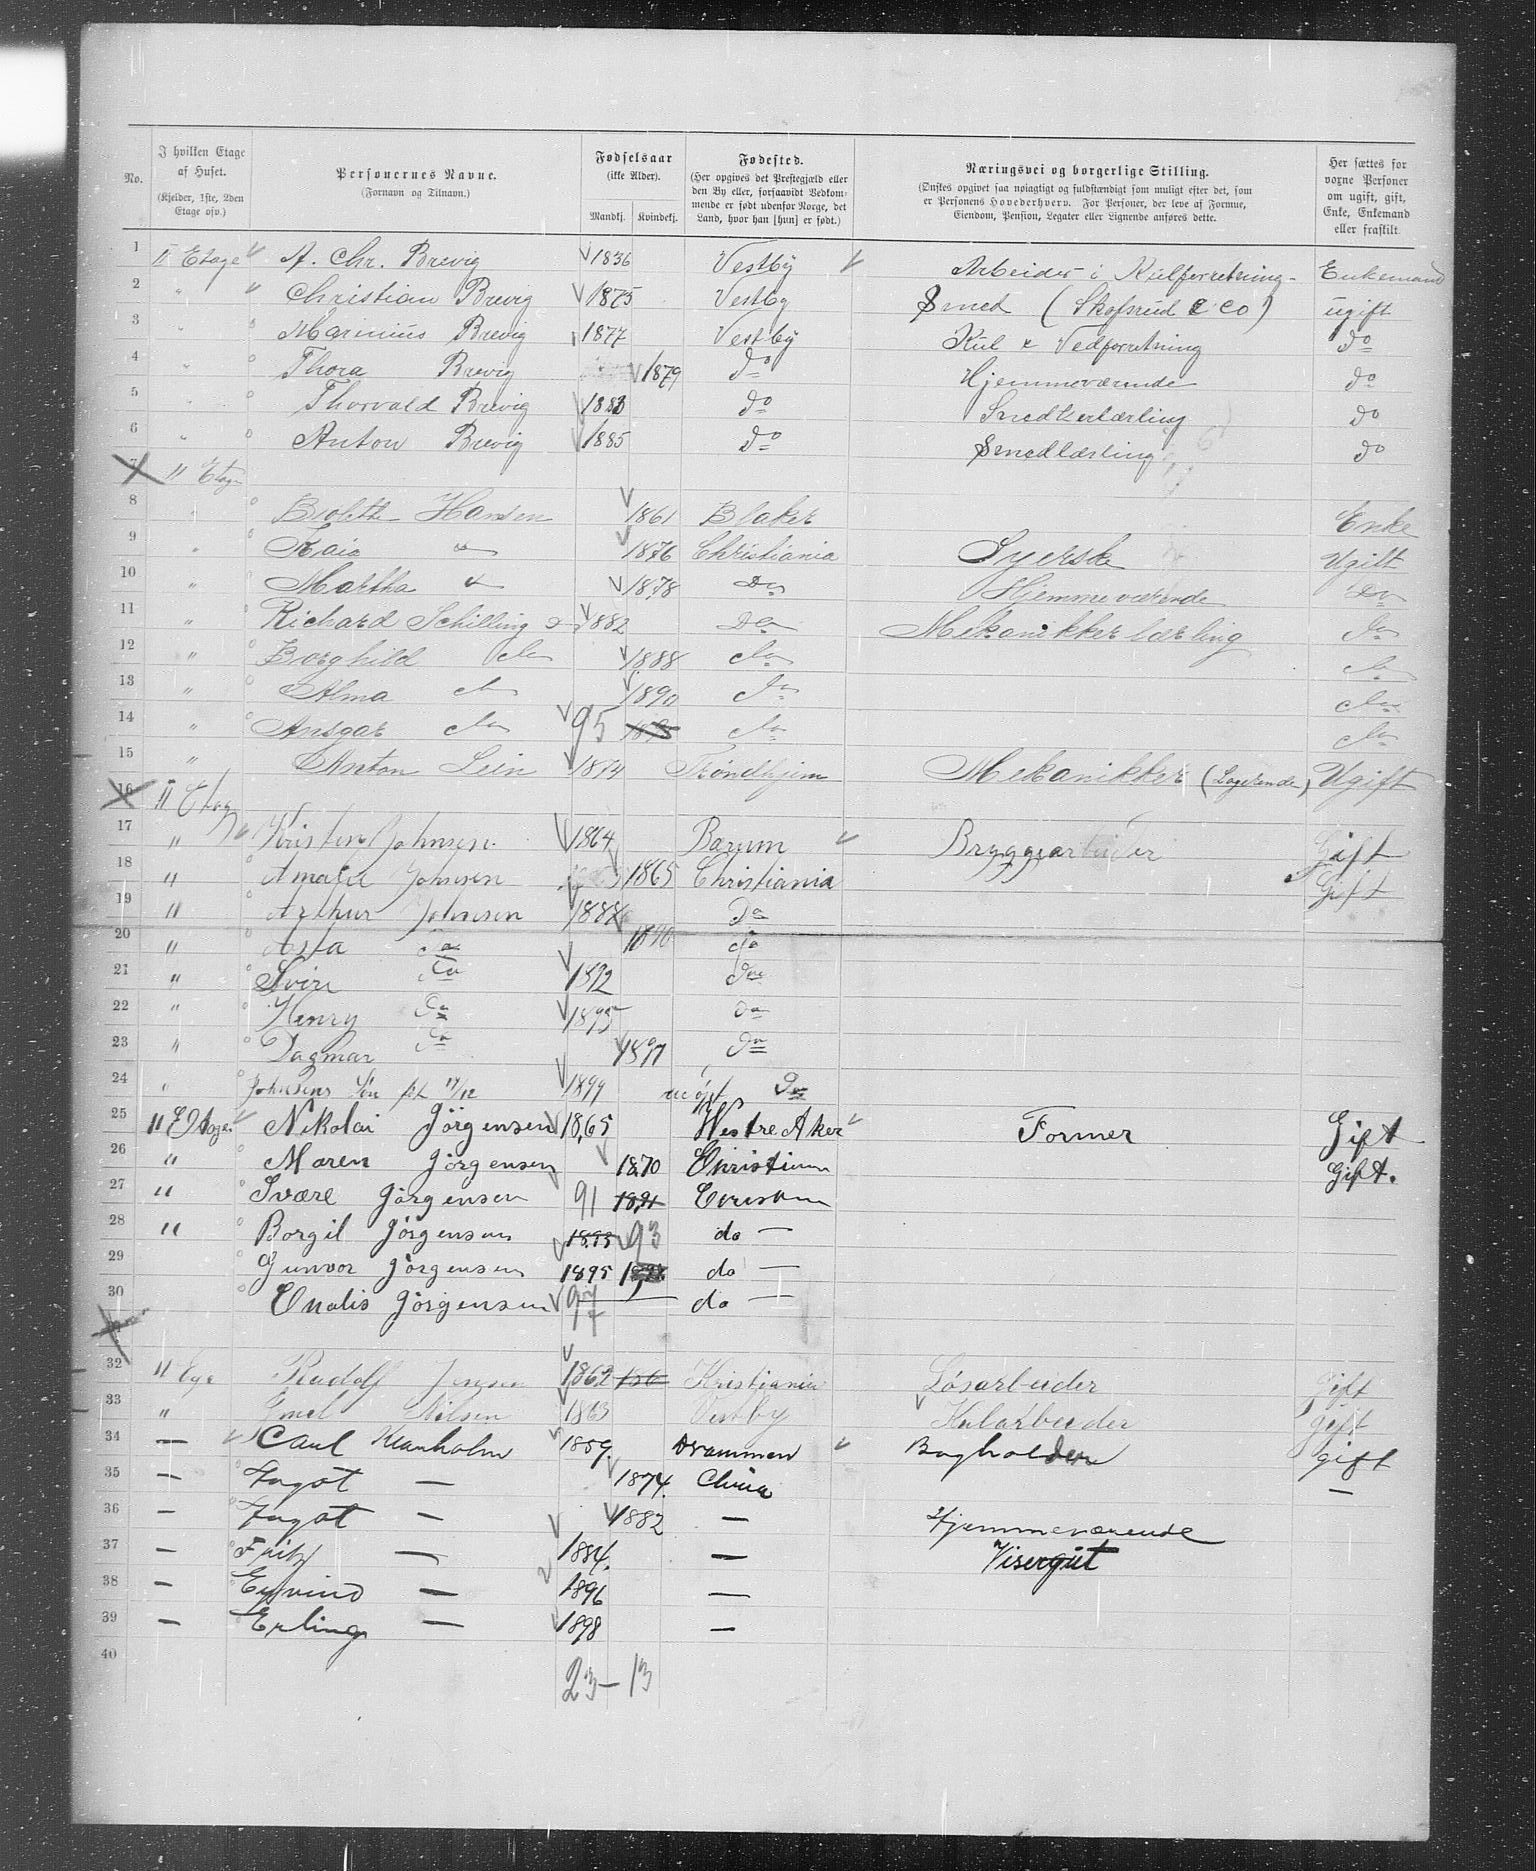 No. | I hvilken Etage af Huset. (Kjelder, 1ste, 2den Etage osv.) | Personernes Navne. (Fornavn og Tilnavn.) | Fødselsaar (ikke Alder). Mandkj. Kvindekj. | Fødested. (Her opgives det Prestegjæld eller den By eller, forsaavidt Vedkommende er født udenfor Norge, det Land, hvor han [hun] er født.) | Næringsvei og borgerlige Stilling. (Ønskes opgivet saa nøiagtigt og fuldstændigt som muligt efter det, som er Personens Hovederhverv. For Personer, der leve af Formue, Eiendom, Pension, Legater eller Lignende anføres dette. | Her sættes for voxne Personer om ugift, gift, Enke, Enkemand eller fraskilt.
1 II Etage A. Chr. Brevig 1836 Vestby Arbeider i Kulforretning - Enkemand
2 " Christian Brevig 1875 Vestby Smed ( & Co) ugift
3 " Marinius Brevig 1877 Vestby Kul & Vedforretning do
4 " Thora Brevig 1879 do Hjemmeværende do
5 " Thorvald Brevig 1883 do Snedkerlærling do
6 " Anton Brevig 1885 do Smedlærling do
7 II Etage
8 Bolette Hansen 1861 Blaker Enke
9 " Kaia " 1876 Christiania Syerske Ugift
10 " Martha " 1878 Do Hjemmeværende Do
11 " Richard Schilling 1882 Do Mekanikker lærling do
12 " Borghild do 1888 do do
13 " Alma do 1890 do do
14 " Ansgar do 95 do do
15 " Anton Lein 1874 Trondhjem Mekanikker (Logerende) Ugift
16 II Etag
17 " Kristen Johnsen 1864 Bærum Bryggearbeider Gift
18 " Amalie Johnsen 1865 Christiania Gift
19 " Arthur Johnsen 1888 Do
20 " Asta Do 1890 do
21 " Do 1892 Do
22 " Henry Do 1895 Do
23 " Dagmar Do 1897 Do
24 " Johnsens Søn født 17/12 1899 Do
25 II Etage. Nikolai Jörgensen 1865 Westre Aker Former Gift
26 " Maren Jörgensen 1870 Christiania Gift.
27 " Svære Jörgensen 91 1891
28 " Borgil Jörgensen 1893 93 do —
29 Gunvor Jörgensen 1895 do —
30 Jörgensen 97 do —
32 II Rudolf Jensen 1862 Kristiania Løsarbeider gift
33 " Emil Nilsen 1863 Vestby Kularbeider gift
34 — Carl 1859. Drammen Bogholder gift
35 — — 1874. —
36 — — 1882 — Hjemmeværende
37 — Fritz — 1884. — Visergut
38 — Eyvind — 1896 —
39 — Erling — 1898 —
40
23 – 13